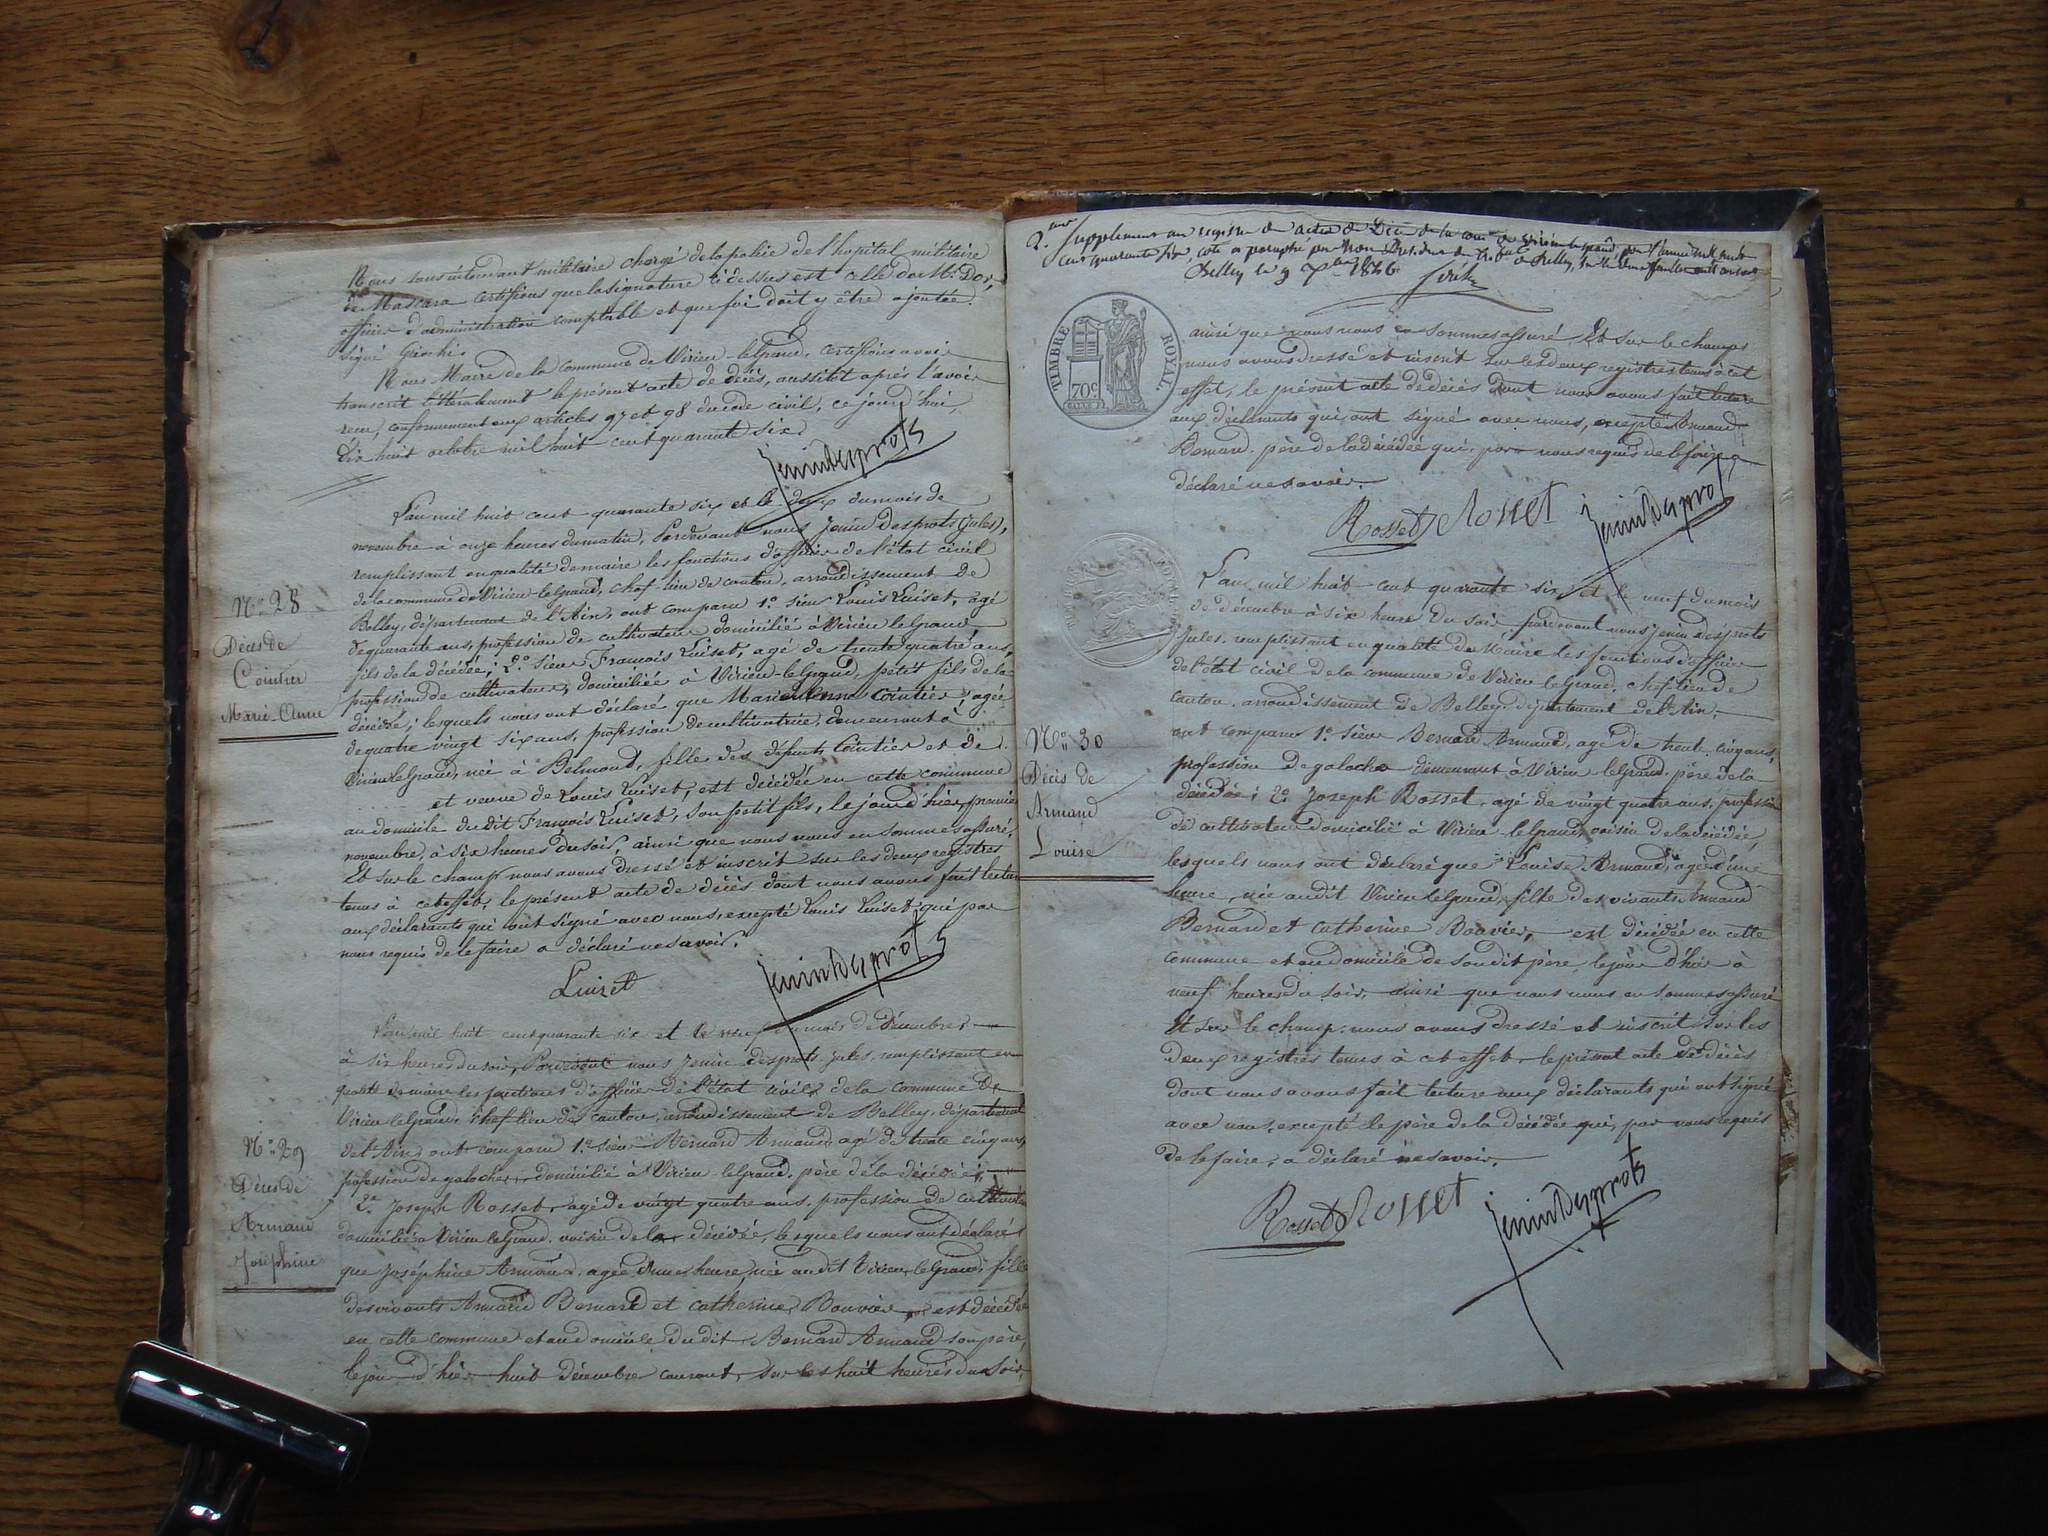 Nous sous intendant militaire chargé de la police de l'hopital militaire
de Mascara certifions que la signature ci dessus est celle de Mr
officier d'administration comptable et que foi doit y être ajoutée.
signé
Nous Maire de la commune de Virieu-le Grand, certifions avoir
transcrit littéralement le présent acte de décès, aussitôt après l'avoir
recu, conformement aux articles 97 et 98 du code civil, ce jourd'hui,
Dix huit octobre mil huit cent quarante six.
Jenin Desprots
L'an mil huit cent quarante six et le deux du mois de
novembre à onze heures du matin, Pardevant nous Jenin Desprots (Jules),
remplissant en qualité de maire les fonctions d'officier de l'état civil
de la commune de Virieu le Grand, chef lieu de canton, arrondissement de
Belley, département de l'Ain, ont comparu 1º sieur Louis Luiset, agé
de quarante ans, profession de cultivateur domicilié à Virieu le Grand
fils de la décédée; 2º sieur François Luiset, agé de trente quatre ans,
profession de cultivateur, domiciliée à Virieu-le Grand, petit fils de la
décédée; lesquels nous ont déclaré que Marie Anne Cointier agée
de quatre vingt six ans, profession de cultivatrice, demeurant à
Virieu le Grand, née à Belmond, fille des défunts Cointier et de
et veuve de Louis Luiset, est décédée en cette commune
au domicile du dit François Luiset, son petit fils, le jour d'hier, premier
novembre, à six heures du soir, ainsi que nous nous en sommes assuré.
Et sur le champ nous avons dressé et inscrit sur les deux registres
tenus à cet effet, le présent acte de décès dont nous avons fait lecture
aux déclarants qui ont signé avec nous, excepté Louis Luiset qui par
nous requis de le faire a déclaré ne savoir.
Luiset
Jenin Desprots
L'an mil huit cent quarante six et le neuf du mois de Décembre,
à six heures du soir, Pardevant nous Jenin desprots Jules, remplissant en
qualité de maire les fonctions d'officier de l'état civil, de la commune de
Virieu le Grand, chef lieu de canton, arrondissement de Belley, département
de l'Ain, ont comparu 1º sieur Bernard Armand, agé de trente cinq ans,
profession de galocher domicilié à Virieu le Grand, père de la décédée;
2º Joseph Rosset, agé de vingt quatre ans, profession de cultivateur
domicilié à Virieu le Grand, voisin de la décédée, lesquels nous ont déclarés
que Joséphine Armand, agée d'une heure, née au dit Virieu le Grand, fille
des vivants Armand Bernard et catherine Bouvier, est décédée
en cette commune et au domicile du dit Bernard Armand son père,
le jour d'hier huit décembre courant, sur les huit heures du soir,
Nº 28
Décès de
Cointier
Marie-Anne
Nº 29
Décès de
Armand
Joséphine
2.me supplément au registre des actes de Décès de la com.ne de Virieu le grand, pour l'année mil huit
cent quarante six, coté et paraphé par Nous
Belley le 9 Xbre 1846
TIMBRE ROYAL
70 c
ainsi que nous nous en sommes assuré Et sur le champs
nous avons dressé et inscrit sur les deux registres tenus à cet
effet, le présent acte de décès dont nous avons fait lecture
aux déclarants qui ont signé avec nous, excepté Armand
Bernard père de la décédée qui, par nous requis de le faire a
déclaré ne savoir.
Rosset Rosset Jenin Desprots
L'an mil huit cent quarante six, et le neuf du mois
de décembre à six heures du soir, pardevant nous Jenin desprots
Jules, remplissant en qualité de Maire les fonctions d'officier
de l'état civil de la commune de Virieu le Grand, chef lieu de
canton, arrondissement de Belley, département de l'Ain,
ont comparu 1º sieur Bernard Armand, agé de trente cinq ans,
profession de galoche demeurant à Virieu le Grand, père de la
décédée; 2º Joseph Rosset, agé de vingt quatre ans, profession
de cultivateur domicilié à Virieu le Grand, voisin de la décédée,
lesquels nous ont déclaré que Louise Armand, agée d'une
heure, née au dit Virieu le Grand, fille des vivants Armand
Bernard et Catherine Bouvier, est décédée en cette
commune et au domicile de son dit père, le jour d'hier à
neuf heures du soir, ainsi que nous nous en sommes assuré
Et sur le champ, nous avons dressé et inscrit sur les
deux registres tenus à cet effet, le présent acte de décès
dont nous avons fait lecture aux déclarants qui ont signé
avec nous, excepté le père de la décédée qui, par nous requis
de le faire, a déclaré ne savoir.
Rosset Rosset Jenin Desprots
Nº 30
Décès de
Armand
Louise